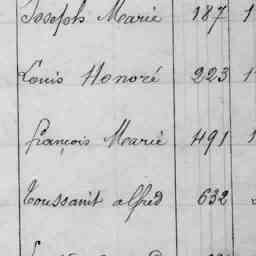 Joseph Marie 187 1
Louis Honoré 223 1
françois Marie 491 1
Toussaint alfred 632